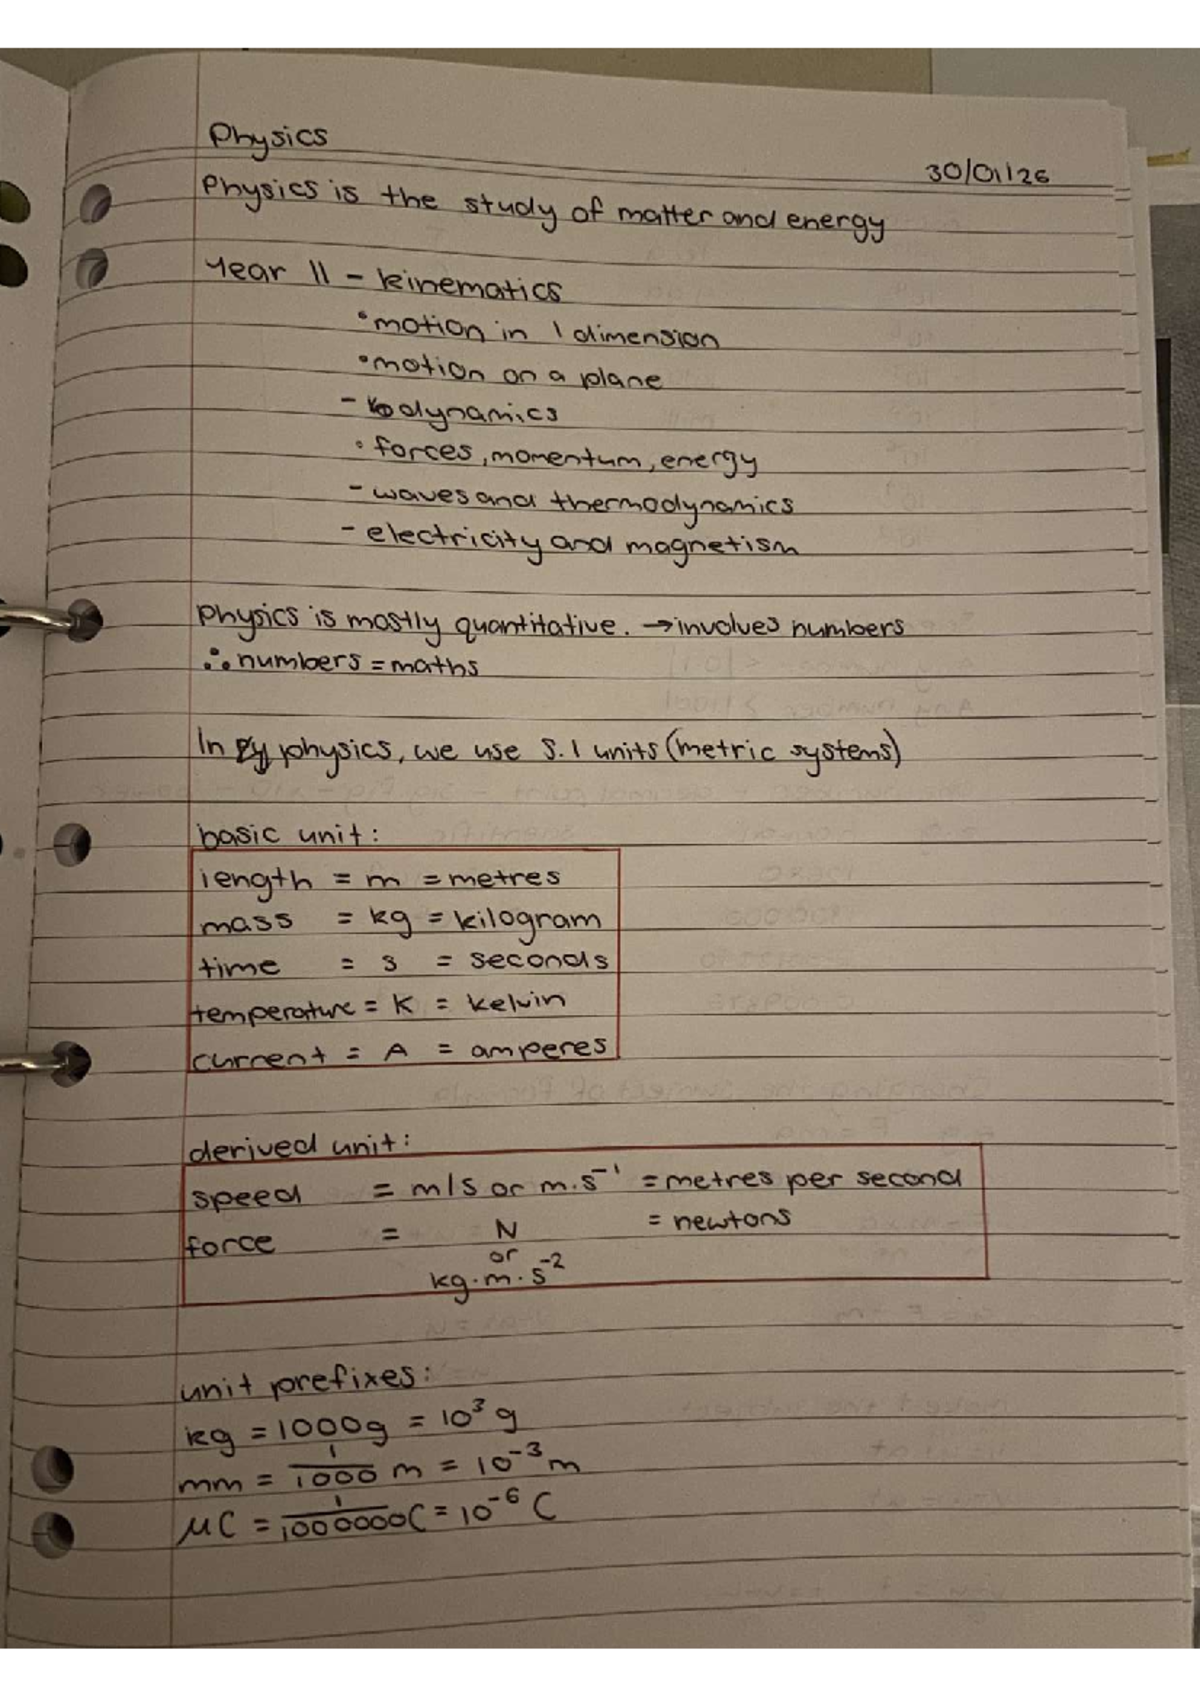 Physics
30/01/26
Physics is the study of matter and energy
Year 11 - kinematics
• motion in 1 dimension
• motion on a plane
- dynamics
• forces, momentum, energy
- waves and thermodynamics
- electricity and magnetism
Physics is mostly quantitative. → involves numbers
∴ numbers = maths
In physics, we use S.I units (metric systems)
basic unit:
length = m = metres
mass = kg = kilogram
time = s = seconds
temperature = K = kelvin
current = A = amperes
derived unit:
speed = m/s or m·s⁻¹ = metres per second
force = N = newtons
or
kg·m·s⁻²
unit prefixes:
kg = 1000g = 10³ g
mm = 1/1000 m = 10⁻³ m
μC = 1/1000000 C = 10⁻⁶ C